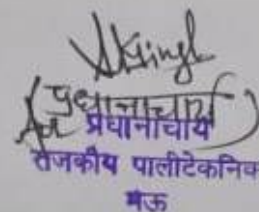 SKSingh
(प्रधानाचार्य)
प्रधानाचार्य
राजकीय पालीटेकनिक
मऊ